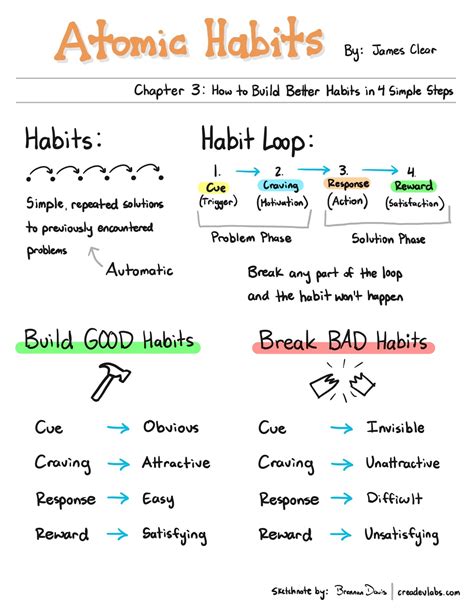 Atomic Habits By: James Clear
Chapter 3: How to Build Better Habits in 4 Simple Steps
Habits:
Simple, repeated solutions
to previously encountered
problems
Automatic
Habit Loop:
1. 2. 3. 4.
Cue Craving Response Reward
(Trigger) (Motivation) (Action) (Satisfaction)
Problem Phase Solution Phase
Break any part of the loop
and the habit won't happen
Build GOOD Habits
Cue Obvious
Craving Attractive
Response Easy
Reward Satisfying
Break BAD Habits
Cue Invisible
Craving Unattractive
Response Difficult
Reward Unsatisfying
Sketchnote by: Brennan Davis | creadevlabs.com